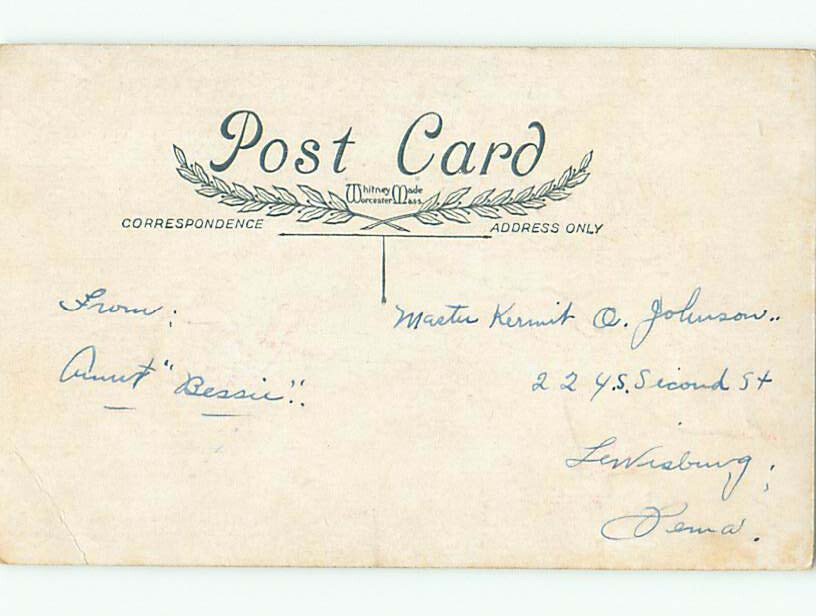 Post Card
Whitney Made
Worcester Mass.
CORRESPONDENCE
ADDRESS ONLY
From:
Aunt "Bessie".
Master Kermit O. Johnson..
224 S. Second St
Lewisburg;
Penna.